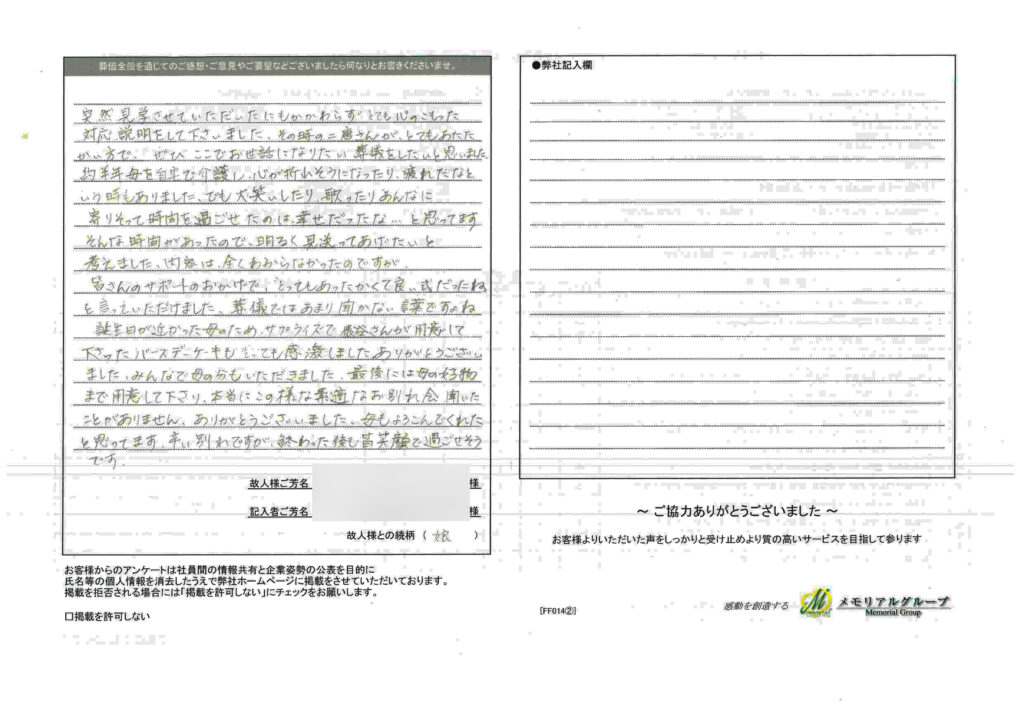 葬儀全般を通じてのご感想・ご意見やご要望などございましたら何なりとお書きくださいませ。
突然見学させていただいたにもかかわらず とても心のこもった
対応、説明をして下さいました、その時の二唐さんが、とてもあたた
かい方で、ぜひここでお世話になりたい 葬儀をしたいと思いました
約半年母を自宅で介護し、心が折れそうになったり、疲れたなと
いう時もありました、でも大笑いしたり、歌ったりあんなに
寄りそって時間を過ごせたのは、幸せだったな…と思ってます
そんな時間があったので、明るく見送ってあげたいと
考えました、内容は、全くわからなかったのですが
皆さんのサポートのおかげで、とってもあったかくて良い式だったね
と言っていただけました、葬儀ではあまり聞かない言葉ですよね
誕生日が近かった母のため、サプライズで さんが用意して
下さったバースデーケーキもとっても感激しました ありがとうござい
ました、みんなで母の分もいただきました、最後には母の好物
まで用意して下さり、本当にこの様な素適なお別れ会聞いた
ことがありません、ありがとうございました、母もよろこんでくれた
と思ってます、辛い別れですが、終わった後も皆笑顔で過ごせそう
です.
故人様ご芳名 様
記入者ご芳名 様
故人様との続柄 ( 娘 )
お客様からのアンケートは社員間の情報共有と企業姿勢の公表を目的に
氏名等の個人情報を消去したうえで弊社ホームページに掲載をさせていただいております。
掲載を拒否される場合には「掲載を許可しない」にチェックをお願いします。
□掲載を許可しない
●弊社記入欄
～ ご協力ありがとうございました ～
お客様よりいただいた声をしっかりと受け止めより質の高いサービスを目指して参ります
[FF014②]
感動を創造する
メモリアルグループ
Memorial Group